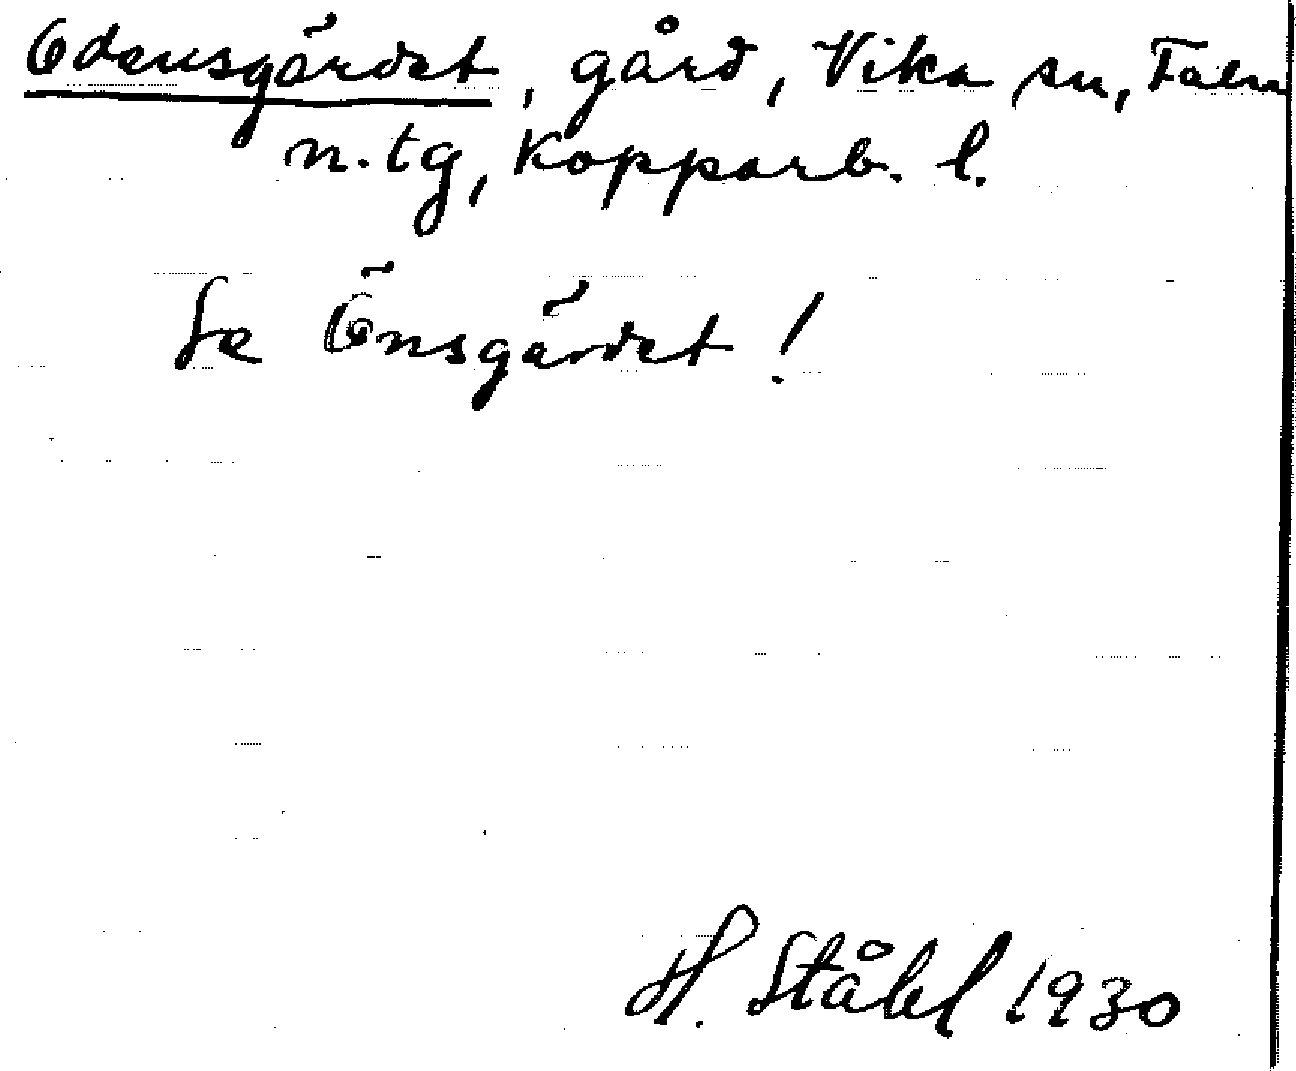 Odensgärdet, gård, Vika sn, Falu
n.tg, Kopparb. l.
Se Önsgärdet!
H. Ståhl 1930